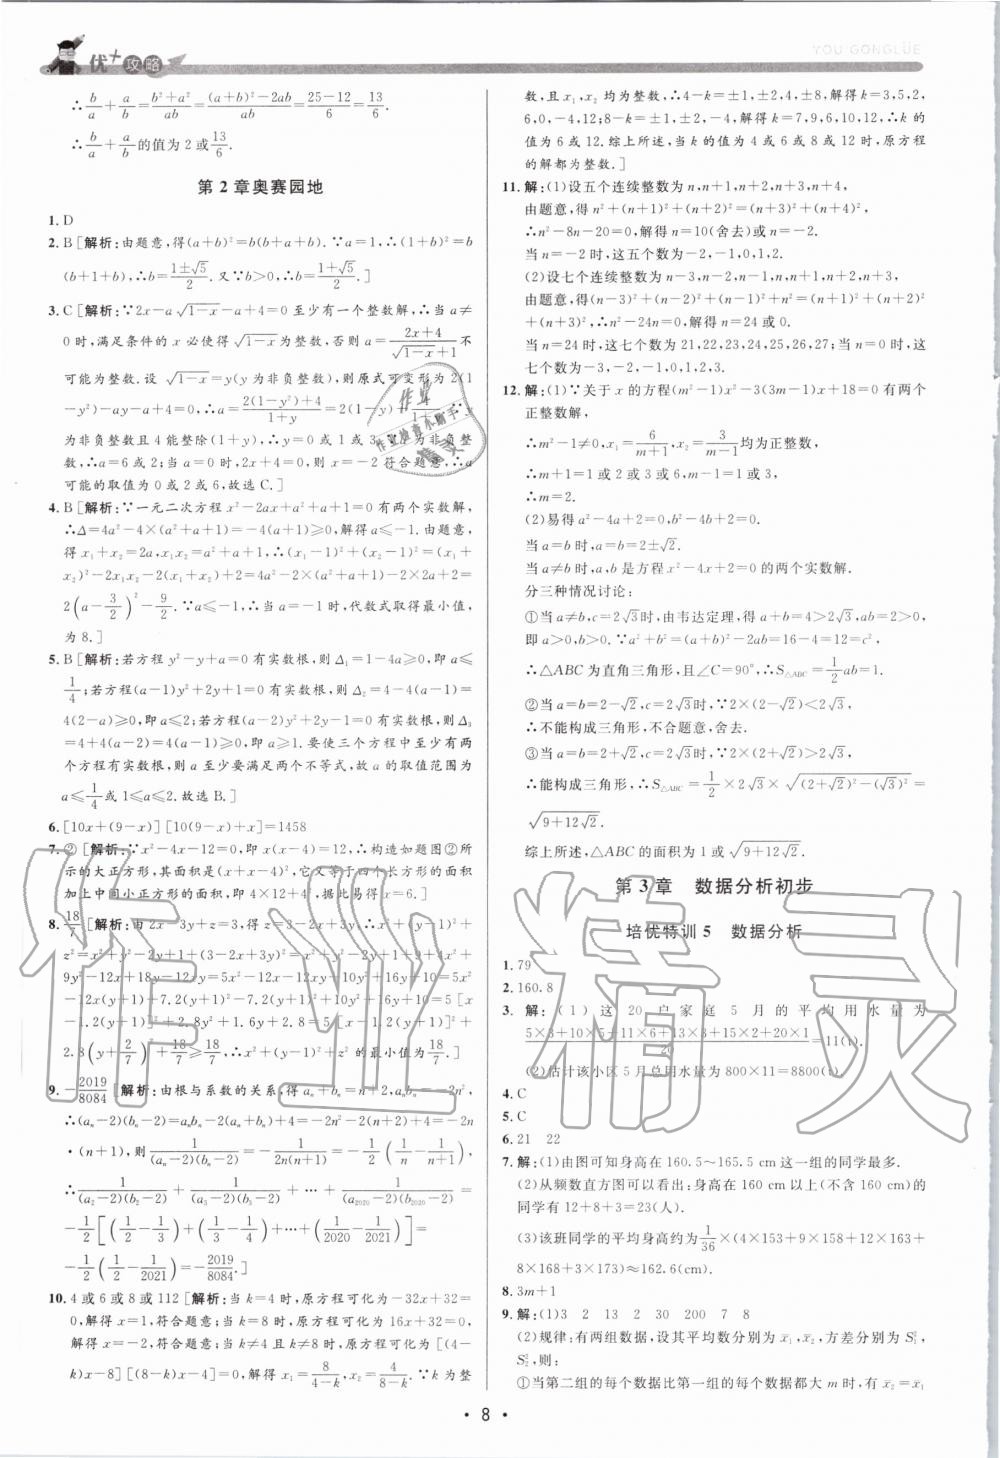 优+攻略
YOU GONGLÜE
∴b/a+a/b=(b²+a²)/ab=((a+b)²-2ab)/ab=(25-12)/6=13/6.
∴b/a+a/b的值为2或13/6.
第2章奥赛园地
1. D
2. B [解析:由题意,得(a+b)²=b(b+a+b).∵a=1,∴(1+b)²=b
(b+1+b),∴b=(1±√5)/2.又∵b>0,∴b=(1+√5)/2.]
3. C [解析:∵2x-a√(1-x)-a+4=0至少有一个整数解,∴当a≠
0时,满足条件的x必使得√(1-x)为整数,否则a=(2x+4)/(√(1-x)+1)不
可能为整数.设√(1-x)=y(y为非负整数),则原式可变形为2(1
-y²)-ay-a+4=0,∴a=(2(1-y²)+4)/(1+y)=2(1-y)+4/(1+y).∵y
为非负整数且4能整除(1+y),∴y=0或1或3.
数,∴a=6或2;当a=0时,x=-2符合题意,∴a
可能的取值为0或2或6,故选C.]
4. B [解析:∵一元二次方程x²-2ax+a²+a+1=0有两个实数解,
∴Δ=4a²-4×(a²+a+1)=-4(a+1)≥0,解得a≤-1.由题意,
得x₁+x₂=2a,x₁x₂=a²+a+1,∴(x₁-1)²+(x₂-1)²=(x₁+
x₂)²-2x₁x₂-2(x₁+x₂)+2=4a²-2×(a²+a+1)-2×2a+2=
2(a-3/2)²-9/2.∵a≤-1,∴当a=-1时,代数式取得最小值,
为8.]
5. B [解析:若方程y²-y+a=0有实数根,则Δ₁=1-4a≥0,即a≤
1/4;若方程(a-1)y²+2y+1=0有实数根,则Δ₂=4-4(a-1)=
4(2-a)≥0,即a≤2;若方程(a-2)y²+2y-1=0有实数根,则Δ₃
=4+4(a-2)=4(a-1)≥0,即a≥1.要使三个方程中至少有两
个方程有实数根,则a至少要满足两个不等式,故a的取值范围为
a≤1/4或1≤a≤2.故选B.]
6. [10x+(9-x)][10(9-x)+x]=1458
7. ② [解析:∵x²-4x-12=0,即x(x-4)=12,∴构造如题图②所
示的大正方形,其面积为(x+x-4)²,它又等于四个长方形的面积
加上中间小正方形的面积,即4×12+4²,据此可得x=6.]
8. 18/7 [解析:由2x-3y+z=3,得z=3-2x+3y,∴x²+(y-1)²+
z²=x²+y²-2y+1+(3-2x+3y)²=x²+y²-2y+1+4x²+
9y²-12x-12xy+18y+9=5x²-12x-12xy+10y²+16y+10=5x²
-12x(y+1)+7.2(y+1)²-7.2(y+1)²+10y²+16y+10=5[x
-1.2(y+1)]²+2.8y²+1.6y+2.8=5[x-1.2(y+1)]²+
2.8(y+2/7)²+18/7≥18/7,∴x²+(y-1)²+z²的最小值为18/7.]
9. -2019/8084 [解析:由根与系数的关系,得aₙ+bₙ=n+2,aₙbₙ=-2n²,
∴(aₙ-2)(bₙ-2)=aₙbₙ-2(aₙ+bₙ)+4=-2n²-2(n+2)+4=-2n
·(n+1),则1/((aₙ-2)(bₙ-2))=-1/(2n(n+1))=-1/2(1/n-1/(n+1)),
∴1/((a₂-2)(b₂-2))+1/((a₃-2)(b₃-2))+…+1/((a₂₀₂₀-2)(b₂₀₂₀-2))=
-1/2[(1/2-1/3)+(1/3-1/4)+…+(1/2020-1/2021)]=
-1/2(1/2-1/2021)=-2019/8084.]
10. 4或6或8或112 [解析:当k=4时,原方程可化为-32x+32=
0,解得x=1,符合题意;当k=8时,原方程可化为16x+32=0,
解得x=-2,符合题意;当k≠4且k≠8时,原方程可化为[(4-
k)x-8][(8-k)x-4]=0,解得x₁=8/(4-k),x₂=4/(8-k).∵k为整
数,且x₁,x₂均为整数,∴4-k=±1,±2,±4,±8,解得k=3,5,2,
6,0,-4,12;8-k=±1,±2,-4,解得k=7,9,6,10,12,∴k的
值为6或12.综上所述,当k的值为4或6或8或12时,原方程
的解都为整数.]
11. 解:(1)设五个连续整数为n,n+1,n+2,n+3,n+4,
由题意,得n²+(n+1)²+(n+2)²=(n+3)²+(n+4)²,
∴n²-8n-20=0,解得n=10(舍去)或n=-2.
当n=-2时,这五个数为-2,-1,0,1,2.
(2)设七个连续整数为n-3,n-2,n-1,n,n+1,n+2,n+3,
由题意,得(n-3)²+(n-2)²+(n-1)²+n²=(n+1)²+(n+2)²
+(n+3)²,∴n²-24n=0,解得n=24或0.
当n=24时,这七个数为21,22,23,24,25,26,27;当n=0时,这
七个数为-3,-2,-1,0,1,2,3.
12. 解:(1)∵关于x的方程(m²-1)x²-3(3m-1)x+18=0有两个
正整数解,
∴m²-1≠0,x₁=6/(m+1),x₂=3/(m-1)均为正整数,
∴m+1=1或2或3或6,m-1=1或3,
∴m=2.
(2)易得a²-4a+2=0,b²-4b+2=0.
当a=b时,a=b=2±√2.
当a≠b时,a,b是方程x²-4x+2=0的两个实数解.
分三种情况讨论:
①当a≠b,c=2√3时,由韦达定理,得a+b=4>2√3,ab=2>0,
即a>0,b>0.∵a²+b²=(a+b)²-2ab=16-4=12=c²,
∴△ABC为直角三角形,且∠C=90°,∴S△ABC=1/2ab=1.
②当a=b=2-√2,c=2√3时,∵2×(2-√2)<2√3,
∴不能构成三角形,不合题意,舍去.
③当a=b=2+√2,c=2√3时,∵2×(2+√2)>2√3,
∴能构成三角形,∴S△ABC=1/2×2√3×√((2+√2)²-(√3)²)=
√(9+12√2).
综上所述,△ABC的面积为1或√(9+12√2).
第3章 数据分析初步
培优特训5 数据分析
1. 79
2. 160.8
3. 解:(1)这20户家庭5月的平均用水量为
(5×3+10×5+11×6+13×3+15×2+20×1)/20=11(t).
(2)估计该小区5月总用水量为800×11=8800(t).
4. C
5. C
6. 21 22
7. 解:(1)由图可知身高在160.5~165.5 cm这一组的同学最多.
(2)从频数直方图可以看出:身高在160 cm以上(不含160 cm)的
同学有12+8+3=23(人).
(3)该班同学的平均身高约为1/36×(4×153+9×158+12×163+
8×168+3×173)≈162.6(cm).
8. 3m+1
9. 解:(1)3 2 13 2 30 200 7 8
(2)规律:有两组数据,设其平均数分别为x̄₁,x̄₂,方差分别为S₁²,
S₂²,则:
①当第二组的每个数据比第一组的每个数据都大m时,有x̄₂=x̄₁
· 8 ·
作业精灵